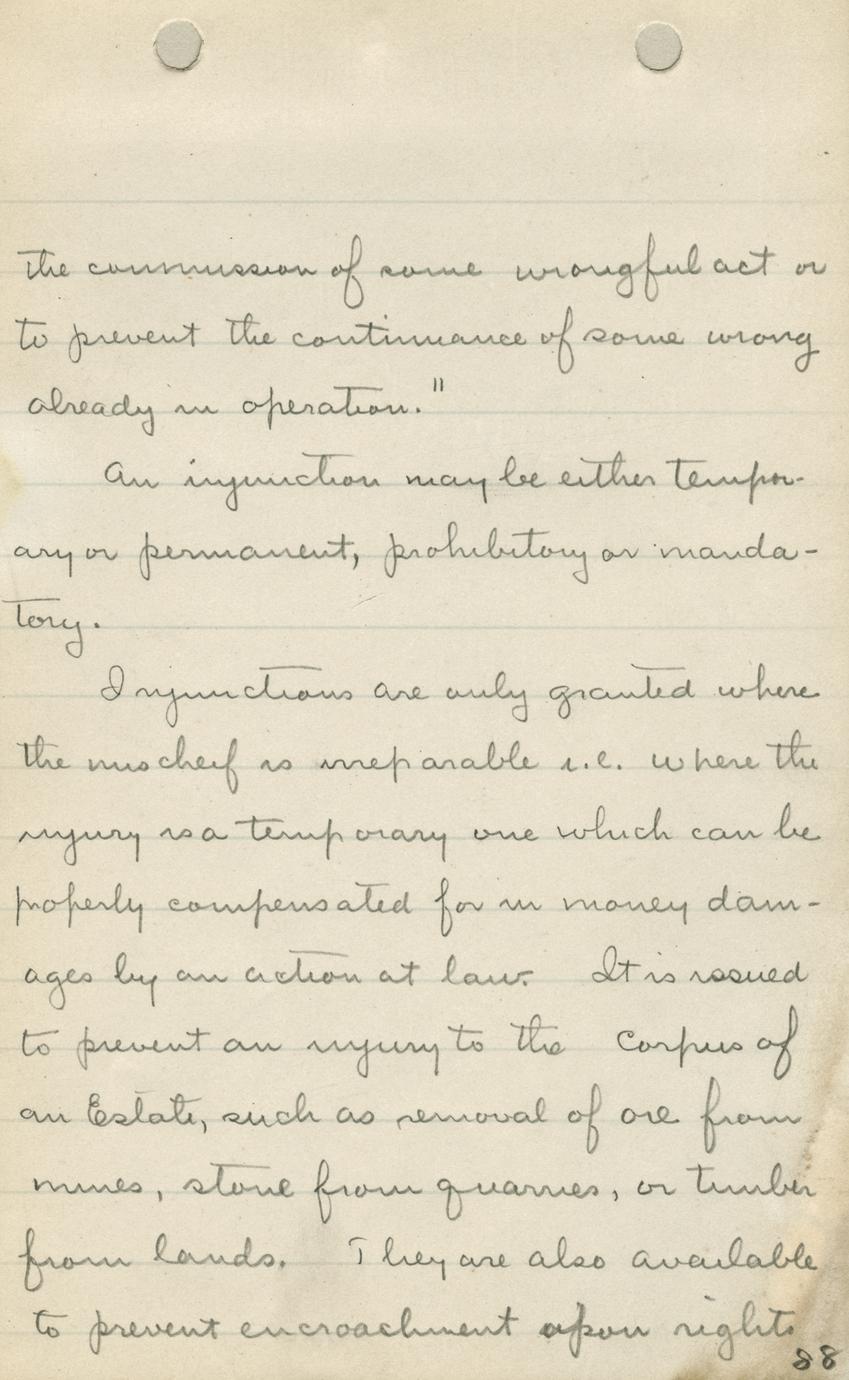 the commission of some wrongful act or
to prevent the continuance of some wrong
already in operation."
An injunction may be either tempor-
ary or permanent, prohibitory or manda-
tory.
Injunctions are only granted where
the mischeif is irreparable i.e. where the
injury is a temporary one which can be
properly compensated for in money dam-
ages by an action at law. It is issued
to prevent an injury to the corpus of
an Estate, such as removal of ore from
mines, stone from quarries, or timber
from lands. They are also available
to prevent encroachment upon rights
88